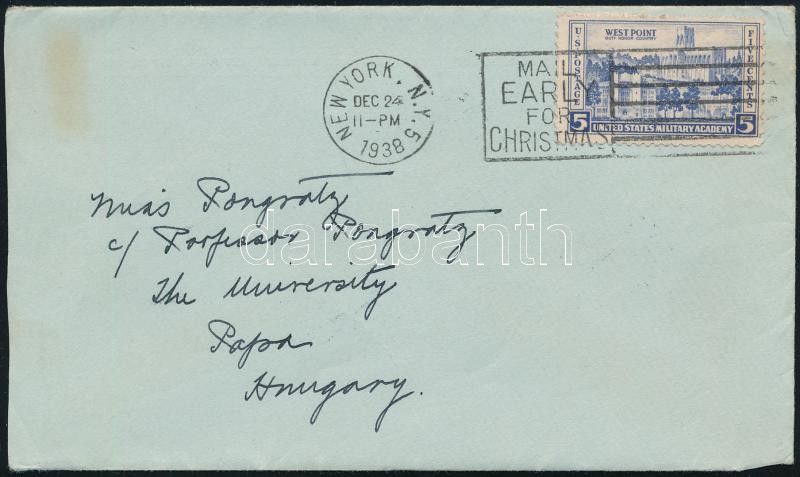 WEST POINT
DUTY HONOR COUNTRY
U.S. POSTAGE
FIVE CENTS
5 UNITED STATES MILITARY ACADEMY 5
NEW YORK, N.Y. 5
DEC 24
11-PM
1938
MAIL
EARLY
FOR
CHRISTMAS
Miss Pongratz
c/ Professor Pongratz
darabanth
The University
Papa
Hungary.